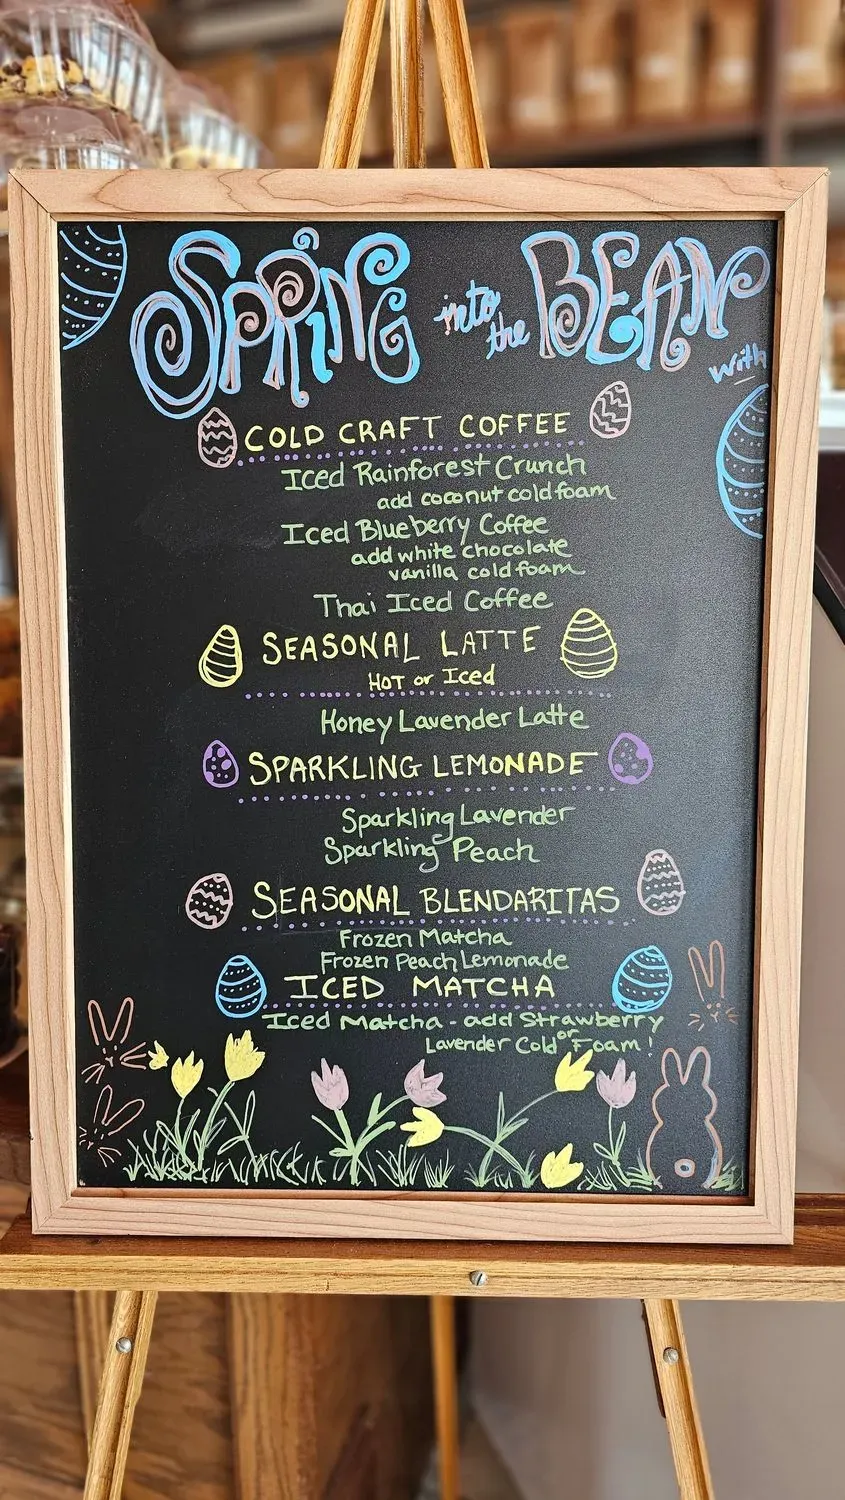 SPRING into the BEAN
with
COLD CRAFT COFFEE
Iced Rainforest Crunch
add coconut cold foam
Iced Blueberry Coffee
add white chocolate
vanilla cold foam
Thai Iced Coffee
SEASONAL LATTE
HOT or Iced
Honey Lavender Latte
SPARKLING LEMONADE
Sparkling Lavender
Sparkling Peach
SEASONAL BLENDARITAS
Frozen Matcha
Frozen Peach Lemonade
ICED MATCHA
Iced Matcha - add Strawberry
or
Lavender Cold Foam!